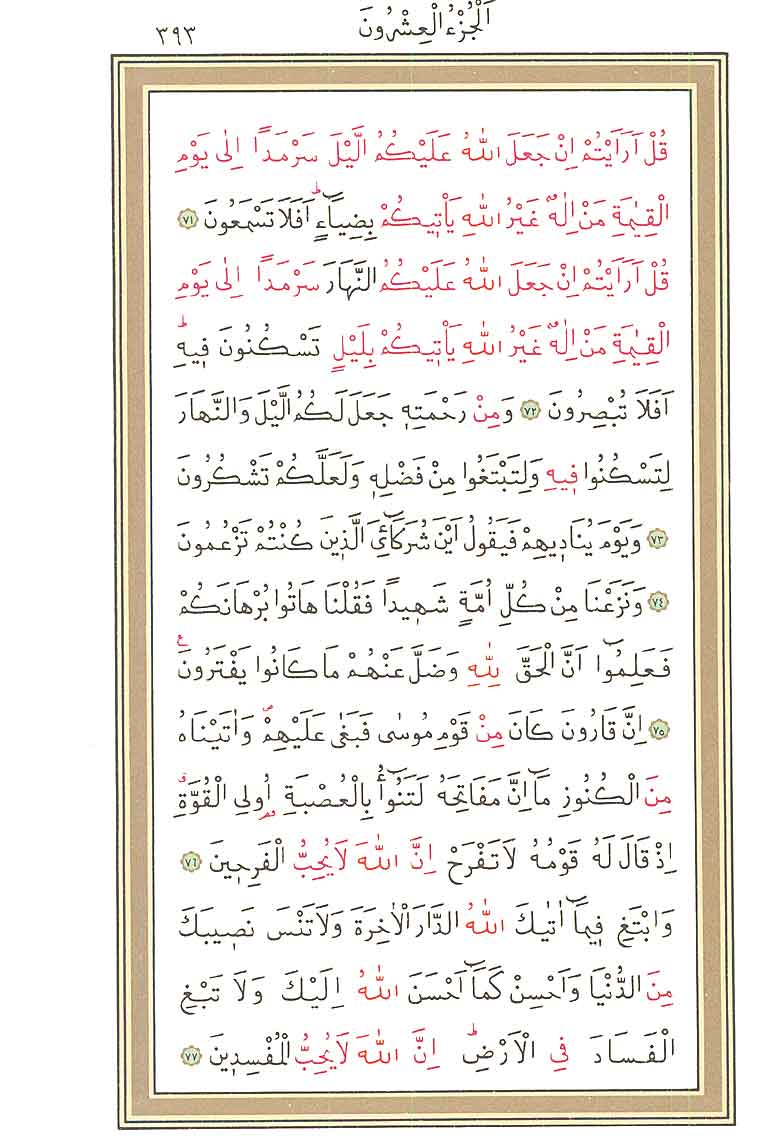 اَلْجُزْءُ الْعِشْرُونَ
٣٩٣
قُلْ اَرَاَيْتُمْ اِنْ جَعَلَ اللّٰهُ عَلَيْكُمُ الَّيْلَ سَرْمَدًا اِلٰى يَوْمِ
الْقِيٰمَةِ مَنْ اِلٰهٌ غَيْرُ اللّٰهِ يَأْت۪يكُمْ بِضِيَٓاءٍۜ اَفَلَا تَسْمَعُونَ ﴿٧١﴾
قُلْ اَرَاَيْتُمْ اِنْ جَعَلَ اللّٰهُ عَلَيْكُمُ النَّهَارَ سَرْمَدًا اِلٰى يَوْمِ
الْقِيٰمَةِ مَنْ اِلٰهٌ غَيْرُ اللّٰهِ يَأْت۪يكُمْ بِلَيْلٍ تَسْكُنُونَ ف۪يهِۜ
اَفَلَا تُبْصِرُونَ ﴿٧٢﴾ وَمِنْ رَحْمَتِه۪ جَعَلَ لَكُمُ الَّيْلَ وَالنَّهَارَ
لِتَسْكُنُوا ف۪يهِ وَلِتَبْتَغُوا مِنْ فَضْلِه۪ وَلَعَلَّكُمْ تَشْكُرُونَ
﴿٧٣﴾ وَيَوْمَ يُنَاد۪يهِمْ فَيَقُولُ اَيْنَ شُرَكَٓائِيَ الَّذ۪ينَ كُنْتُمْ تَزْعُمُونَ
﴿٧٤﴾ وَنَزَعْنَا مِنْ كُلِّ اُمَّةٍ شَه۪يدًا فَقُلْنَا هَاتُوا بُرْهَانَكُمْ
فَعَلِمُٓوا اَنَّ الْحَقَّ لِلّٰهِ وَضَلَّ عَنْهُمْ مَا كَانُوا يَفْتَرُونَ۟ ع
﴿٧٥﴾ اِنَّ قَارُونَ كَانَ مِنْ قَوْمِ مُوسٰى فَبَغٰى عَلَيْهِمْۖ وَاٰتَيْنَاهُ
مِنَ الْكُنُوزِ مَٓا اِنَّ مَفَاتِحَهُ لَتَنُٓوأُ بِالْعُصْبَةِ اُولِي الْقُوَّةِۗ
اِذْ قَالَ لَهُ قَوْمُهُ لَا تَفْرَحْ اِنَّ اللّٰهَ لَا يُحِبُّ الْفَرِح۪ينَ ﴿٧٦﴾
وَابْتَغِ ف۪يمَٓا اٰتٰيكَ اللّٰهُ الدَّارَ الْاٰخِرَةَ وَلَا تَنْسَ نَص۪يبَكَ
مِنَ الدُّنْيَا وَاَحْسِنْ كَمَٓا اَحْسَنَ اللّٰهُ اِلَيْكَ وَلَا تَبْغِ
الْفَسَادَ فِي الْاَرْضِۜ اِنَّ اللّٰهَ لَا يُحِبُّ الْمُفْسِد۪ينَ ﴿٧٧﴾